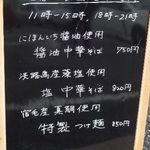 11時〜15時 18時〜21時
にほんいち醤油使用
醤油 中華そば 750円
淡路島産藻塩使用
塩 中華そば 820円
宿毛産真鯛使用
特製つけ麺 850円